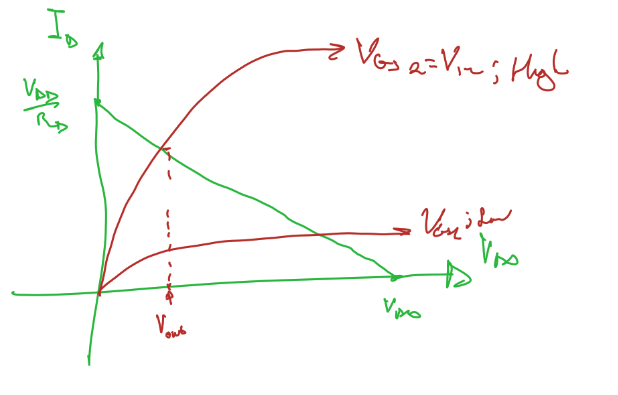 I_D
V_DD
R_D
V_GS2=V_in; High
V_GS1; Low
V_DS
V_DD
V_out